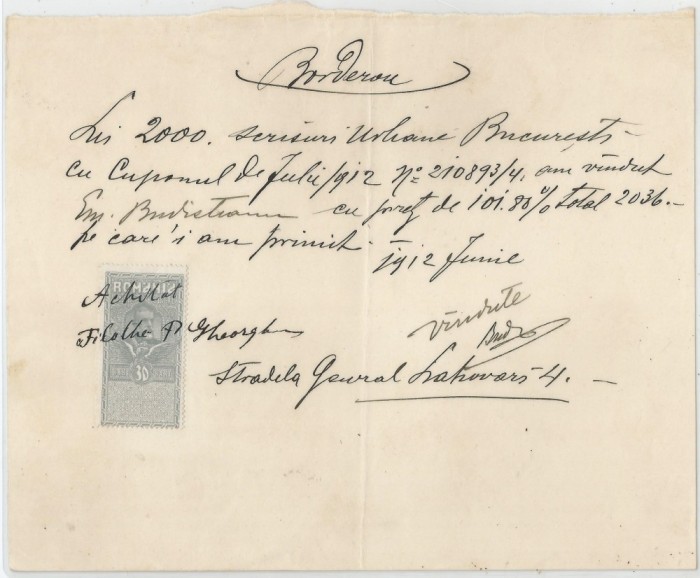 Borderou
Lei 2000. scrisuri Urbane București
cu Cuponul de Julii 1912 No 210893/4, am vîndut
Em. Budisteanu cu preț de 101.80% total 2036.—
pe care 'i am primit.—
1912 Junie
ROMANIA
Achitat
P Gheorghiu
30
vîndute
Strădela General Lahovari 4. —